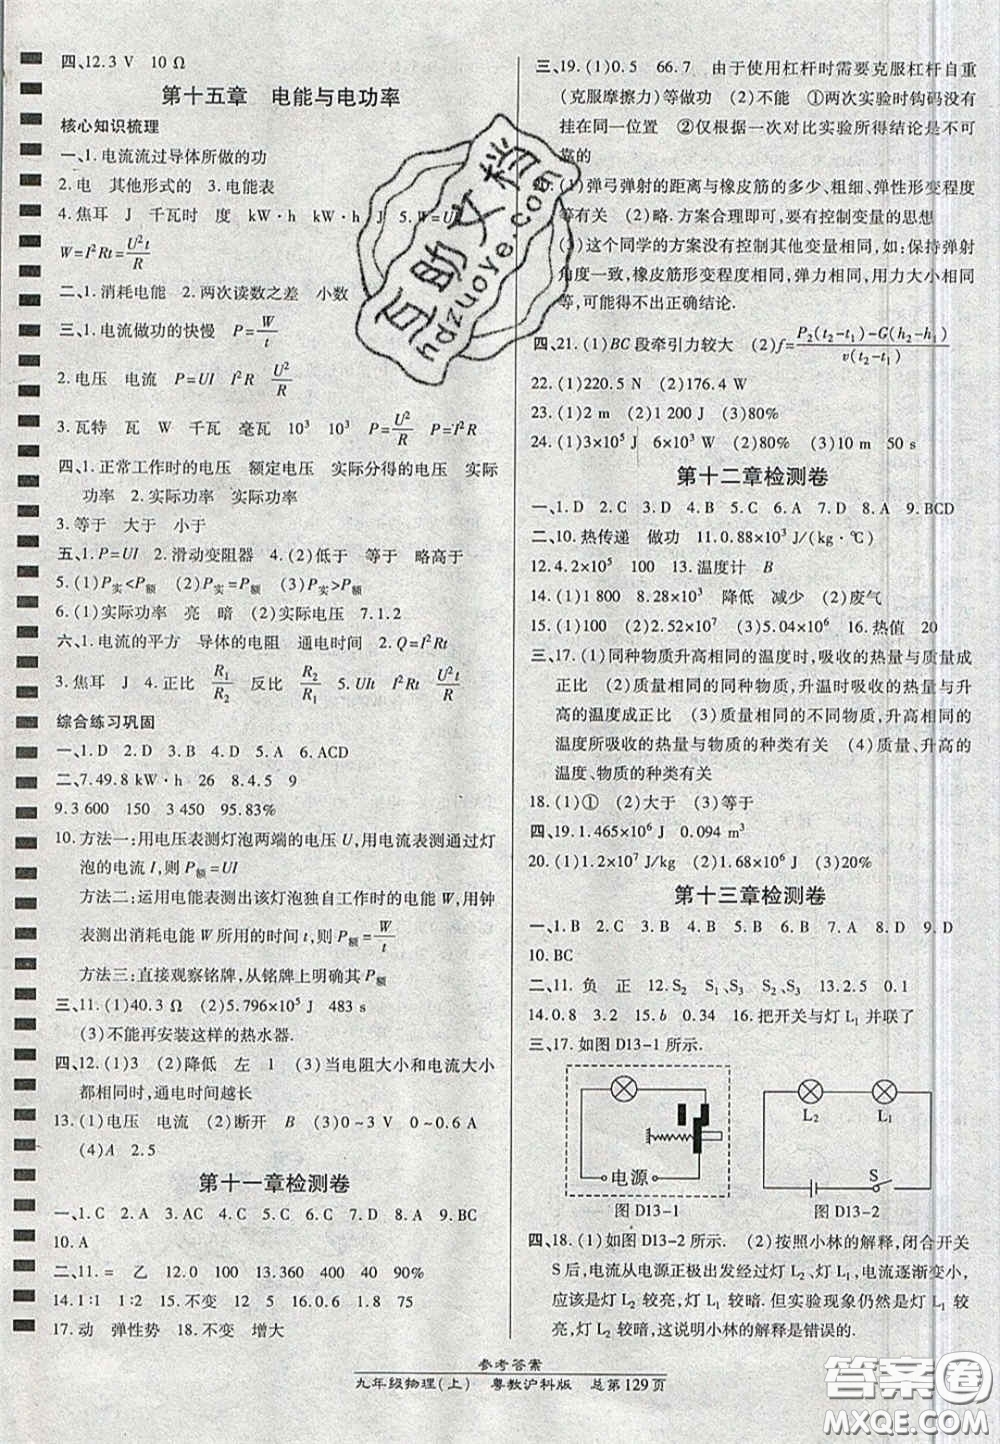 四、12.3 V　10 Ω
第十五章　电能与电功率
核心知识梳理
一、1.电流流过导体所做的功
2.电　其他形式的　3.电能表
4.焦耳　J　千瓦时　度　kW·h　kW·h　J　5.W=UIt
W=I²Rt=U²t/R
二、1.消耗电能　2.两次读数之差　小数
三、1.电流做功的快慢　P=W/t
2.电压　电流　P=UI　I²R　U²/R
3.瓦特　瓦　W　千瓦　毫瓦　10³　10³　P=U²/R　P=I²R
四、1.正常工作时的电压　额定电压　实际分得的电压　实际
功率　2.实际功率　实际功率
3.等于　大于　小于
五、1.P=UI　2.滑动变阻器　4.(2)低于　等于　略高于
5.(1)P实<P额　(2)P实=P额　(3)P实>P额
6.(1)实际功率　亮　暗　(2)实际电压　7.1.2
六、1.电流的平方　导体的电阻　通电时间　2.Q=I²Rt
3.焦耳　J　4.正比　R₁/R₂　反比　R₂/R₁　5.UIt　I²Rt　U²t/R
综合练习巩固
一、1.D　2.D　3.B　4.D　5.A　6.ACD
二、7.49.8 kW·h　26　8.4.5　9
9.3 600　150　3 450　95.83%
10.方法一:用电压表测灯泡两端的电压U,用电流表测通过灯
泡的电流I,则P额=UI
方法二:运用电能表测出该灯泡独自工作时的电能W,用钟
表测出消耗电能W所用的时间t,则P额=W/t
方法三:直接观察铭牌,从铭牌上明确其P额
三、11.(1)40.3 Ω　(2)5.796×10⁵ J　483 s
(3)不能再安装这样的热水器.
四、12.(1)3　(2)降低　左　1　(3)当电阻大小和电流大小
都相同时,通电时间越长
13.(1)电压　电流　(2)断开　B　(3)0~3 V　0~0.6 A
(4)A　2.5
第十一章检测卷
一、1.C　2.A　3.AC　4.C　5.D　6.C　7.AC　8.A　9.BC
10.A
二、11.=　乙　12.0　100　13.360　400　40　90%
14.1∶1　1∶2　15.不变　12　5　16.0.6　1.8　75
17.动　弹性势　18.不变　增大
三、19.(1)0.5　66.7　由于使用杠杆时需要克服杠杆自重
(克服摩擦力)等做功　(2)不能　①两次实验时钩码没有
挂在同一位置　②仅根据一次对比实验所得结论是不可
靠的
(1)弹弓弹射的距离与橡皮筋的多少、粗细、弹性形变程度
等有关　(2)略.方案合理即可,要有控制变量的思想
(3)这个同学的方案没有控制其他变量相同,如:保持弹射
角度一致,橡皮筋形变程度相同,弹力相同,用力大小相同
等,可能得不出正确结论.
四、21.(1)BC段牵引力较大　(2)f=P₂(t₂-t₁)-G(h₂-h₁)/v(t₂-t₁)
22.(1)220.5 N　(2)176.4 W
23.(1)2 m　(2)1 200 J　(3)80%
24.(1)3×10⁵ J　6×10³ W　(2)80%　(3)10 m　50 s
第十二章检测卷
一、1.D　2.C　3.D　4.B　5.A　6.B　7.A　8.C　9.BCD
二、10.热传递　做功　11.0.88×10³ J/(kg·℃)
12.4.2×10⁵　100　13.温度计　B
14.(1)1 800　8.28×10⁷　降低　减少　(2)废气
15.(1)6.72×10⁷　(2)5.04×10⁶　16.热值　20
三、17.(1)同种物质升高相同的温度时,吸收的热量与质量成
正比　(2)质量相同的同种物质,升温时吸收的热量与升
高的温度成正比　(3)质量相同的不同物质,升高相同的
温度所吸收的热量与物质的种类有关　(4)质量、升高的
温度、物质的种类有关
18.(1)①　(2)大于　(3)等于
四、19.1.465×10⁶ J　0.094 m³
20.(1)1.2×10⁷ J/kg　(2)1.68×10⁵ J　(3)20%
第十三章检测卷
一、1.B　2.C　3.B　4.C　5.B　6.B　7.A　8.A　9.D
10.BC
二、11.负　正　12.S₂　S₁、S₃　S₂、S₃　13.2.5　0.1
14.0.8　3.2　15.b　0.34　16.把开关与灯L₁并联了
三、17.如图D13-1所示.
电源
图D13-1
L₂　L₁
S
图D13-2
四、18.(1)如图D13-2所示.　(2)按照小林的解释,闭合开关
S后,电流从电源正极出发经过灯L₂、L₁,电流逐渐变小,
应该是灯L₂较亮,灯L₁较暗.但实验现象仍然是灯L₁较
亮,灯L₂较暗,这说明小林的解释是错误的.
参考答案
九年级物理(上)　粤教沪科版　总第129页
互助文档
hdzuoye.com
答案圈
MXQE.COM